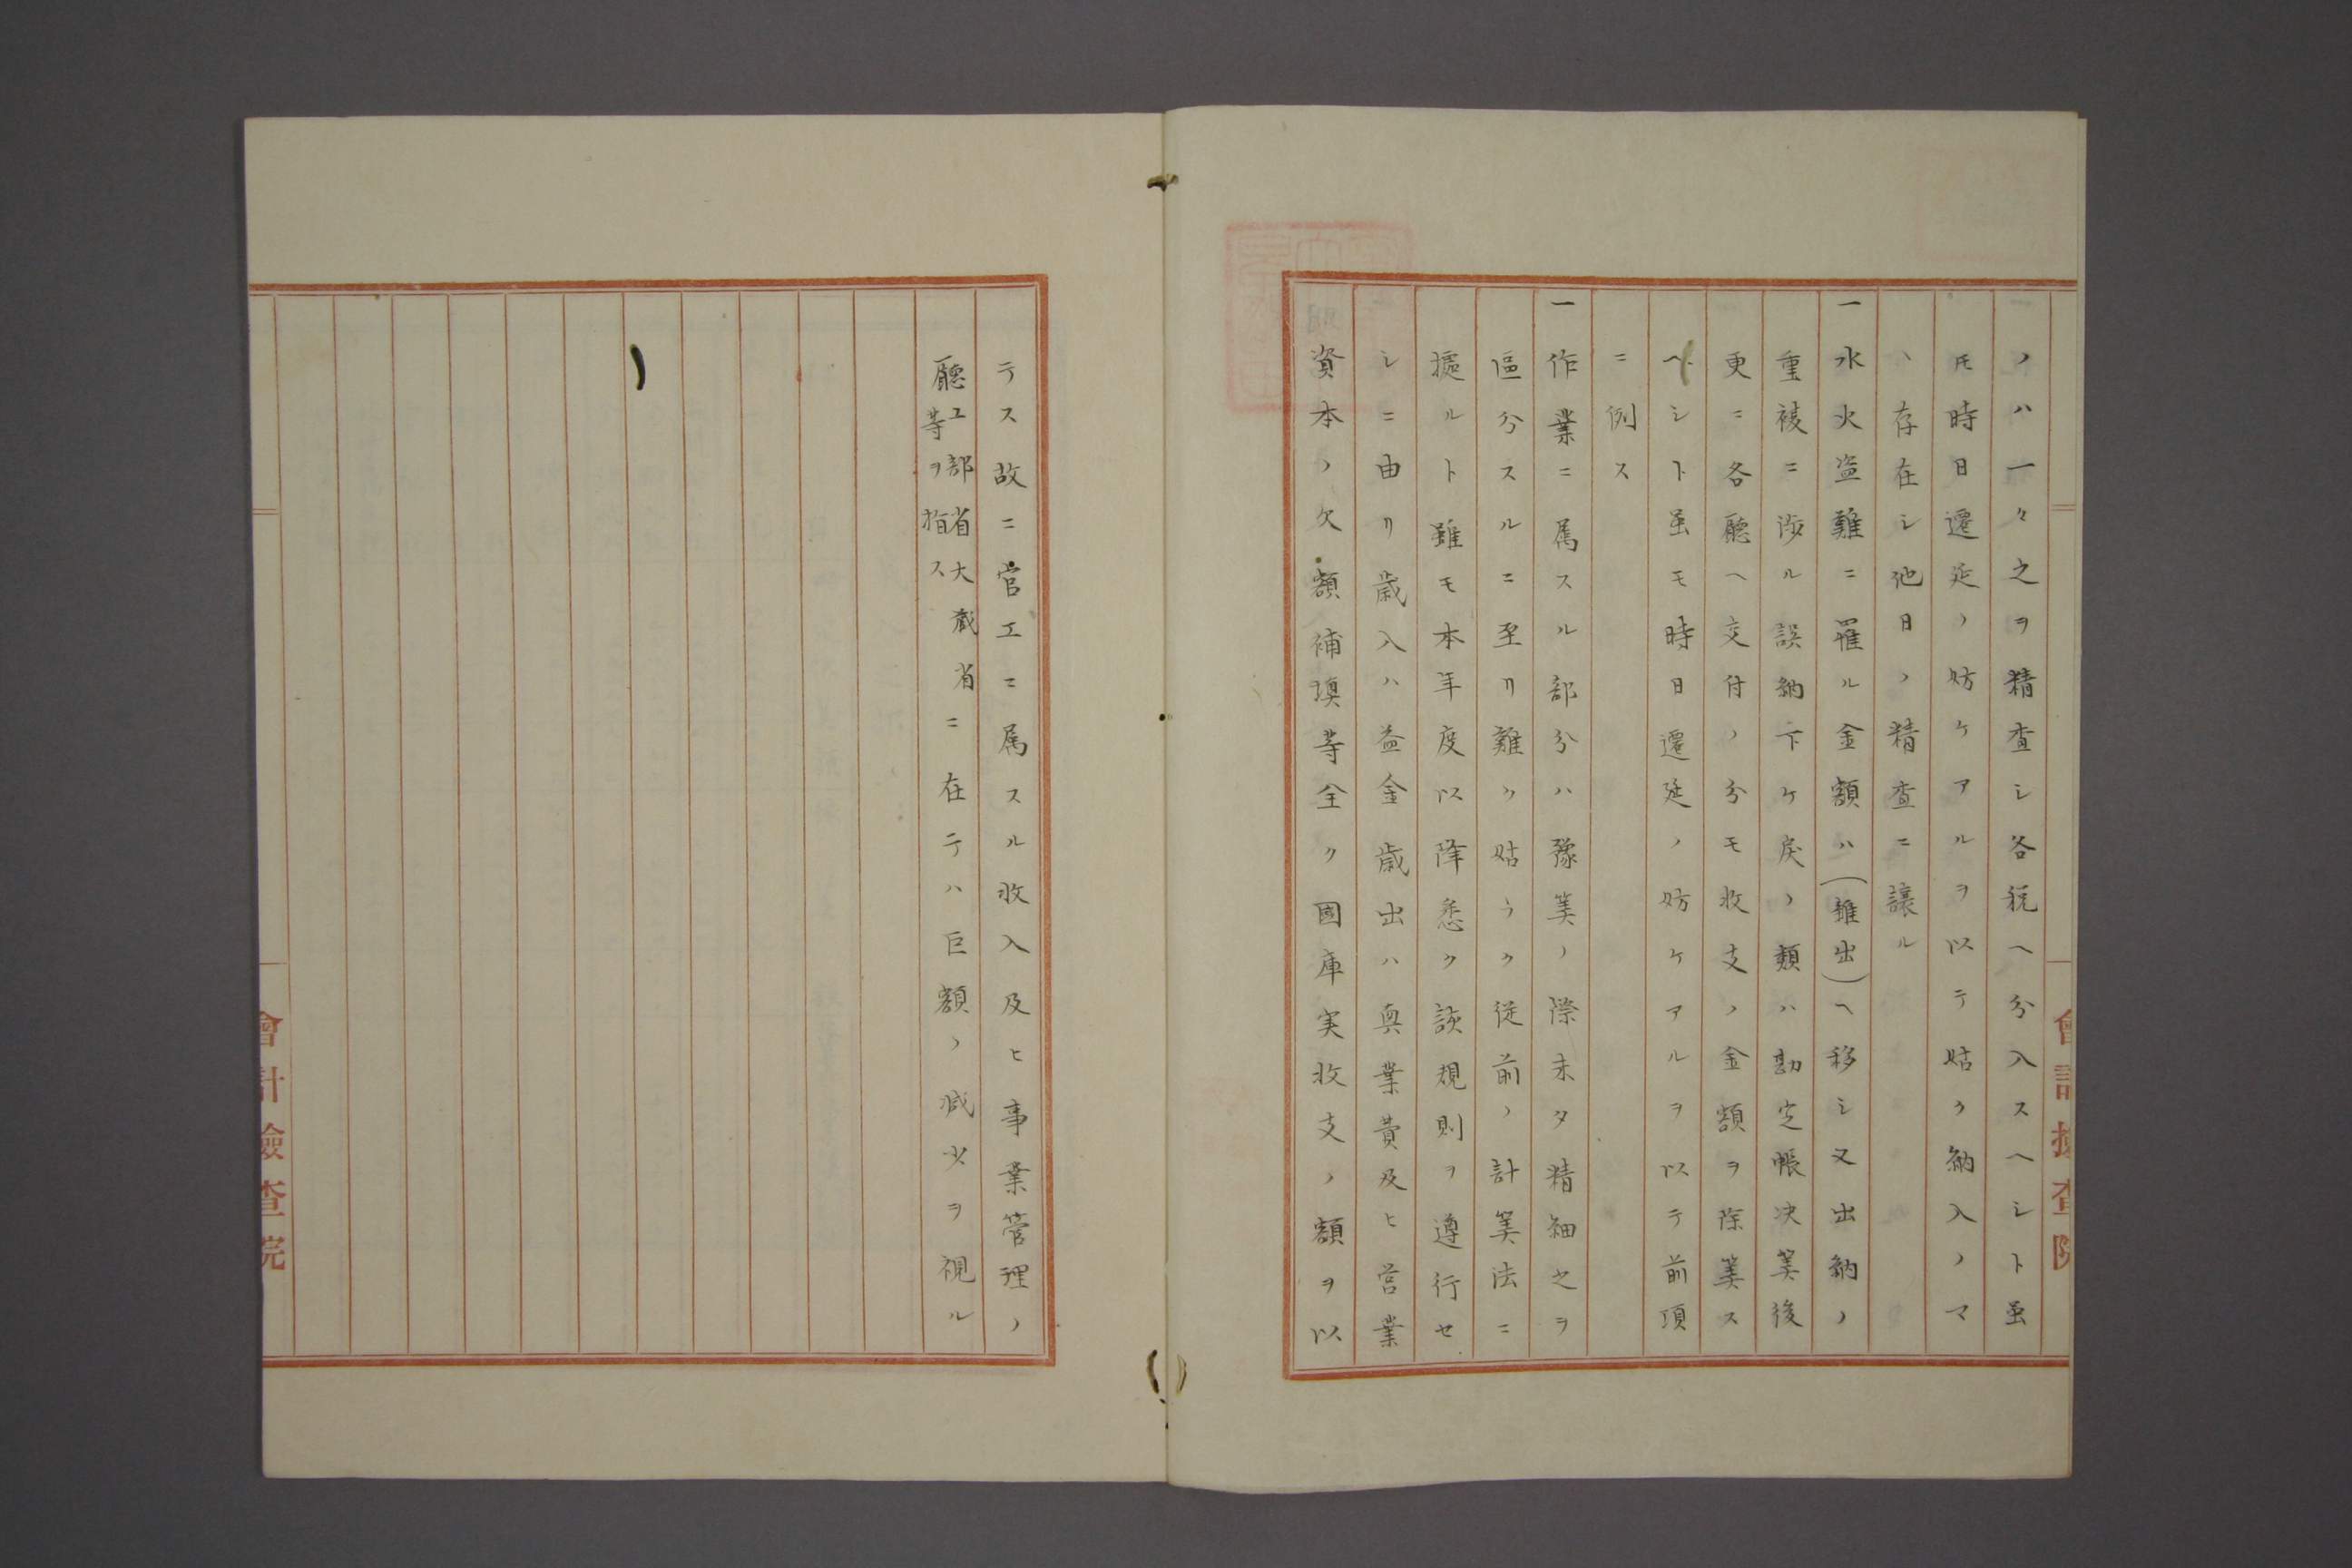 ノハ一々之ヲ精査シ各税ヘ分入スヘシト虽
㪽時日遷延ノ妨ケアルヲ以テ姑ク納入ノマ
ヽ存在シ他日ノ精査ニ譲ル
一水火盗難ニ罹ル金額ハ(雑出)ヘ移シ又出納ノ
重複ニ渉ル誤納下ケ戻ノ類ハ勘定帳决筭後
更ニ各廳ヘ交付ノ分モ收支ノ金額ヲ除筭ス
ヘシト虽モ時日遷延ノ妨ケアルヲ以テ前項
ニ例ス
一作業ニ属スル部分ハ豫筭ノ際未タ精細之ヲ
區分スルニ至リ難ク姑ラク従前ノ計筭法ニ
據ルト雖モ本年度以降悉ク該規則ヲ遵行セ
シニ由リ歳入ハ益金歳出ハ興業費及ヒ営業
資本ノ欠額補塡等全ク國庫実收支ノ額ヲ以
テス故ニ官工ニ属スル收入及ヒ事業管理ノ
廳工部省大蔵省
等ヲ指ス
ニ在テハ巨額ノ减少ヲ視ル
會計檢査院
會計檢査院